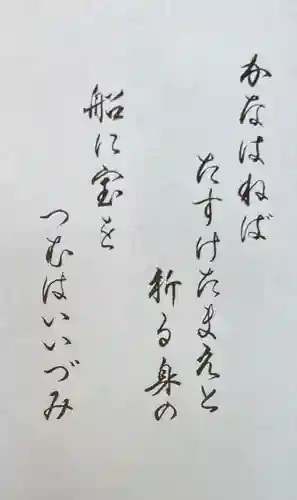 かなはねば
たすけたまえと
祈る身の
船に宝を
つむはいいづみ